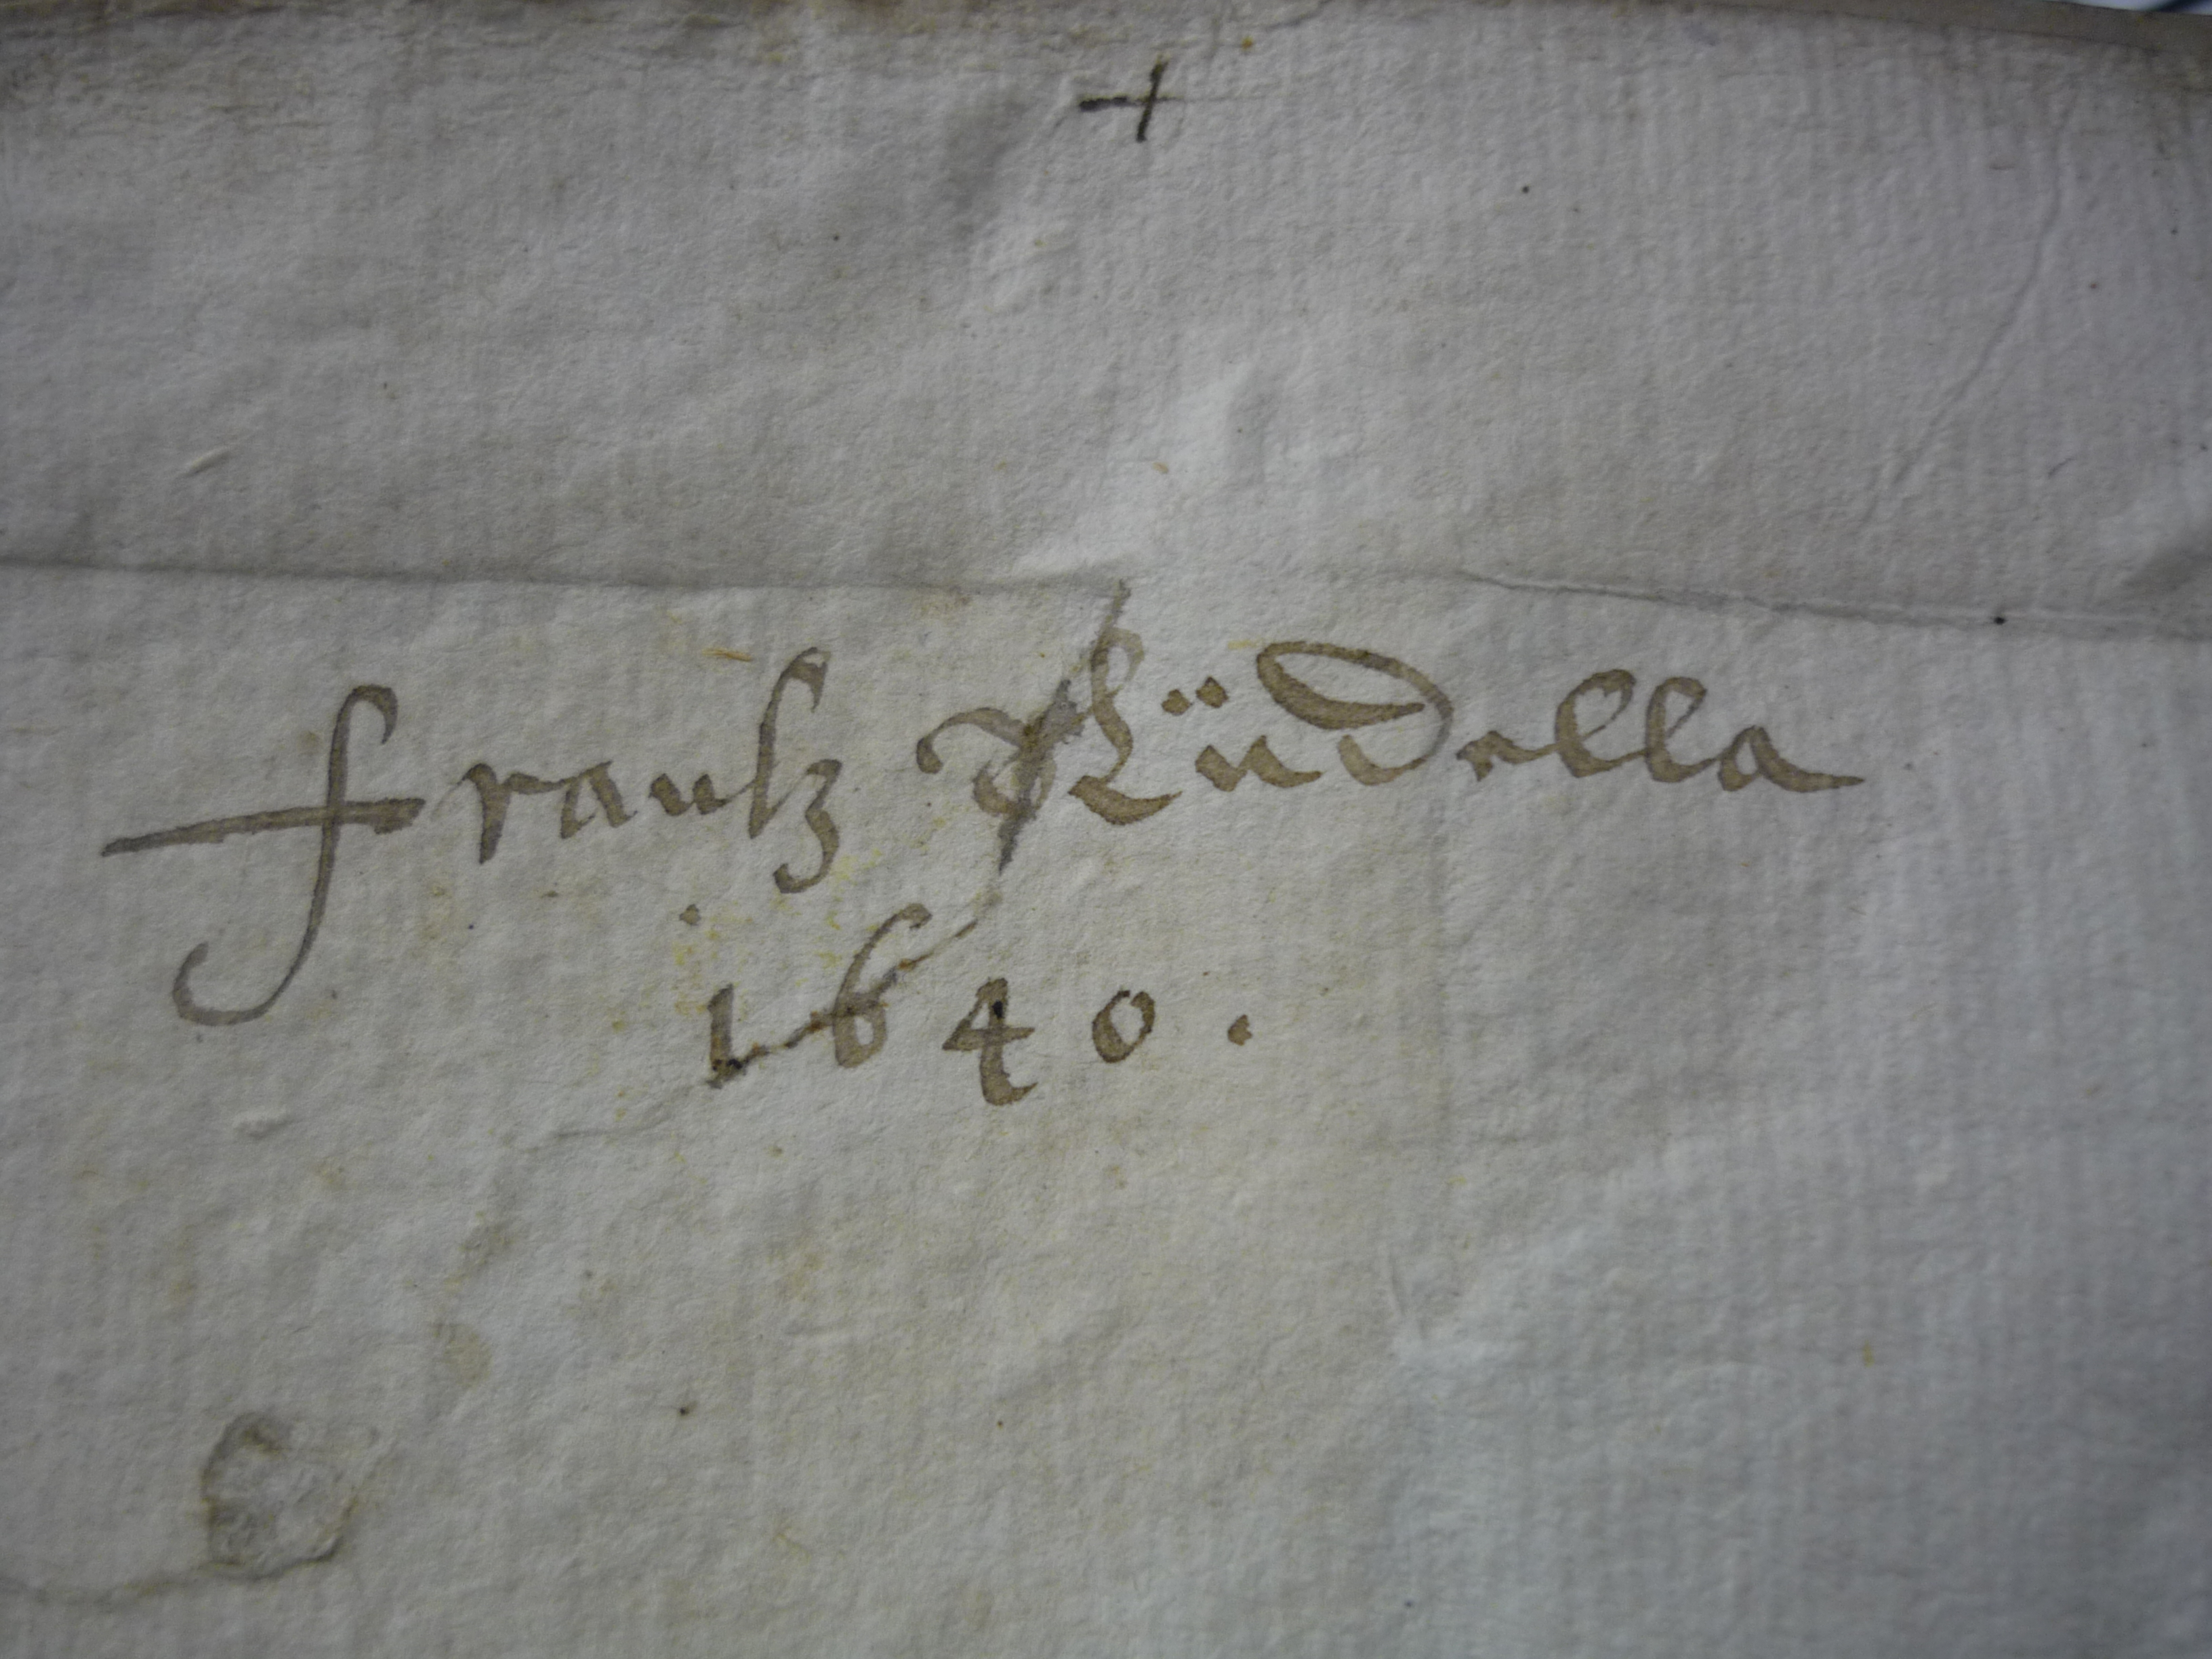 +
Frantz Rüdella
1640.